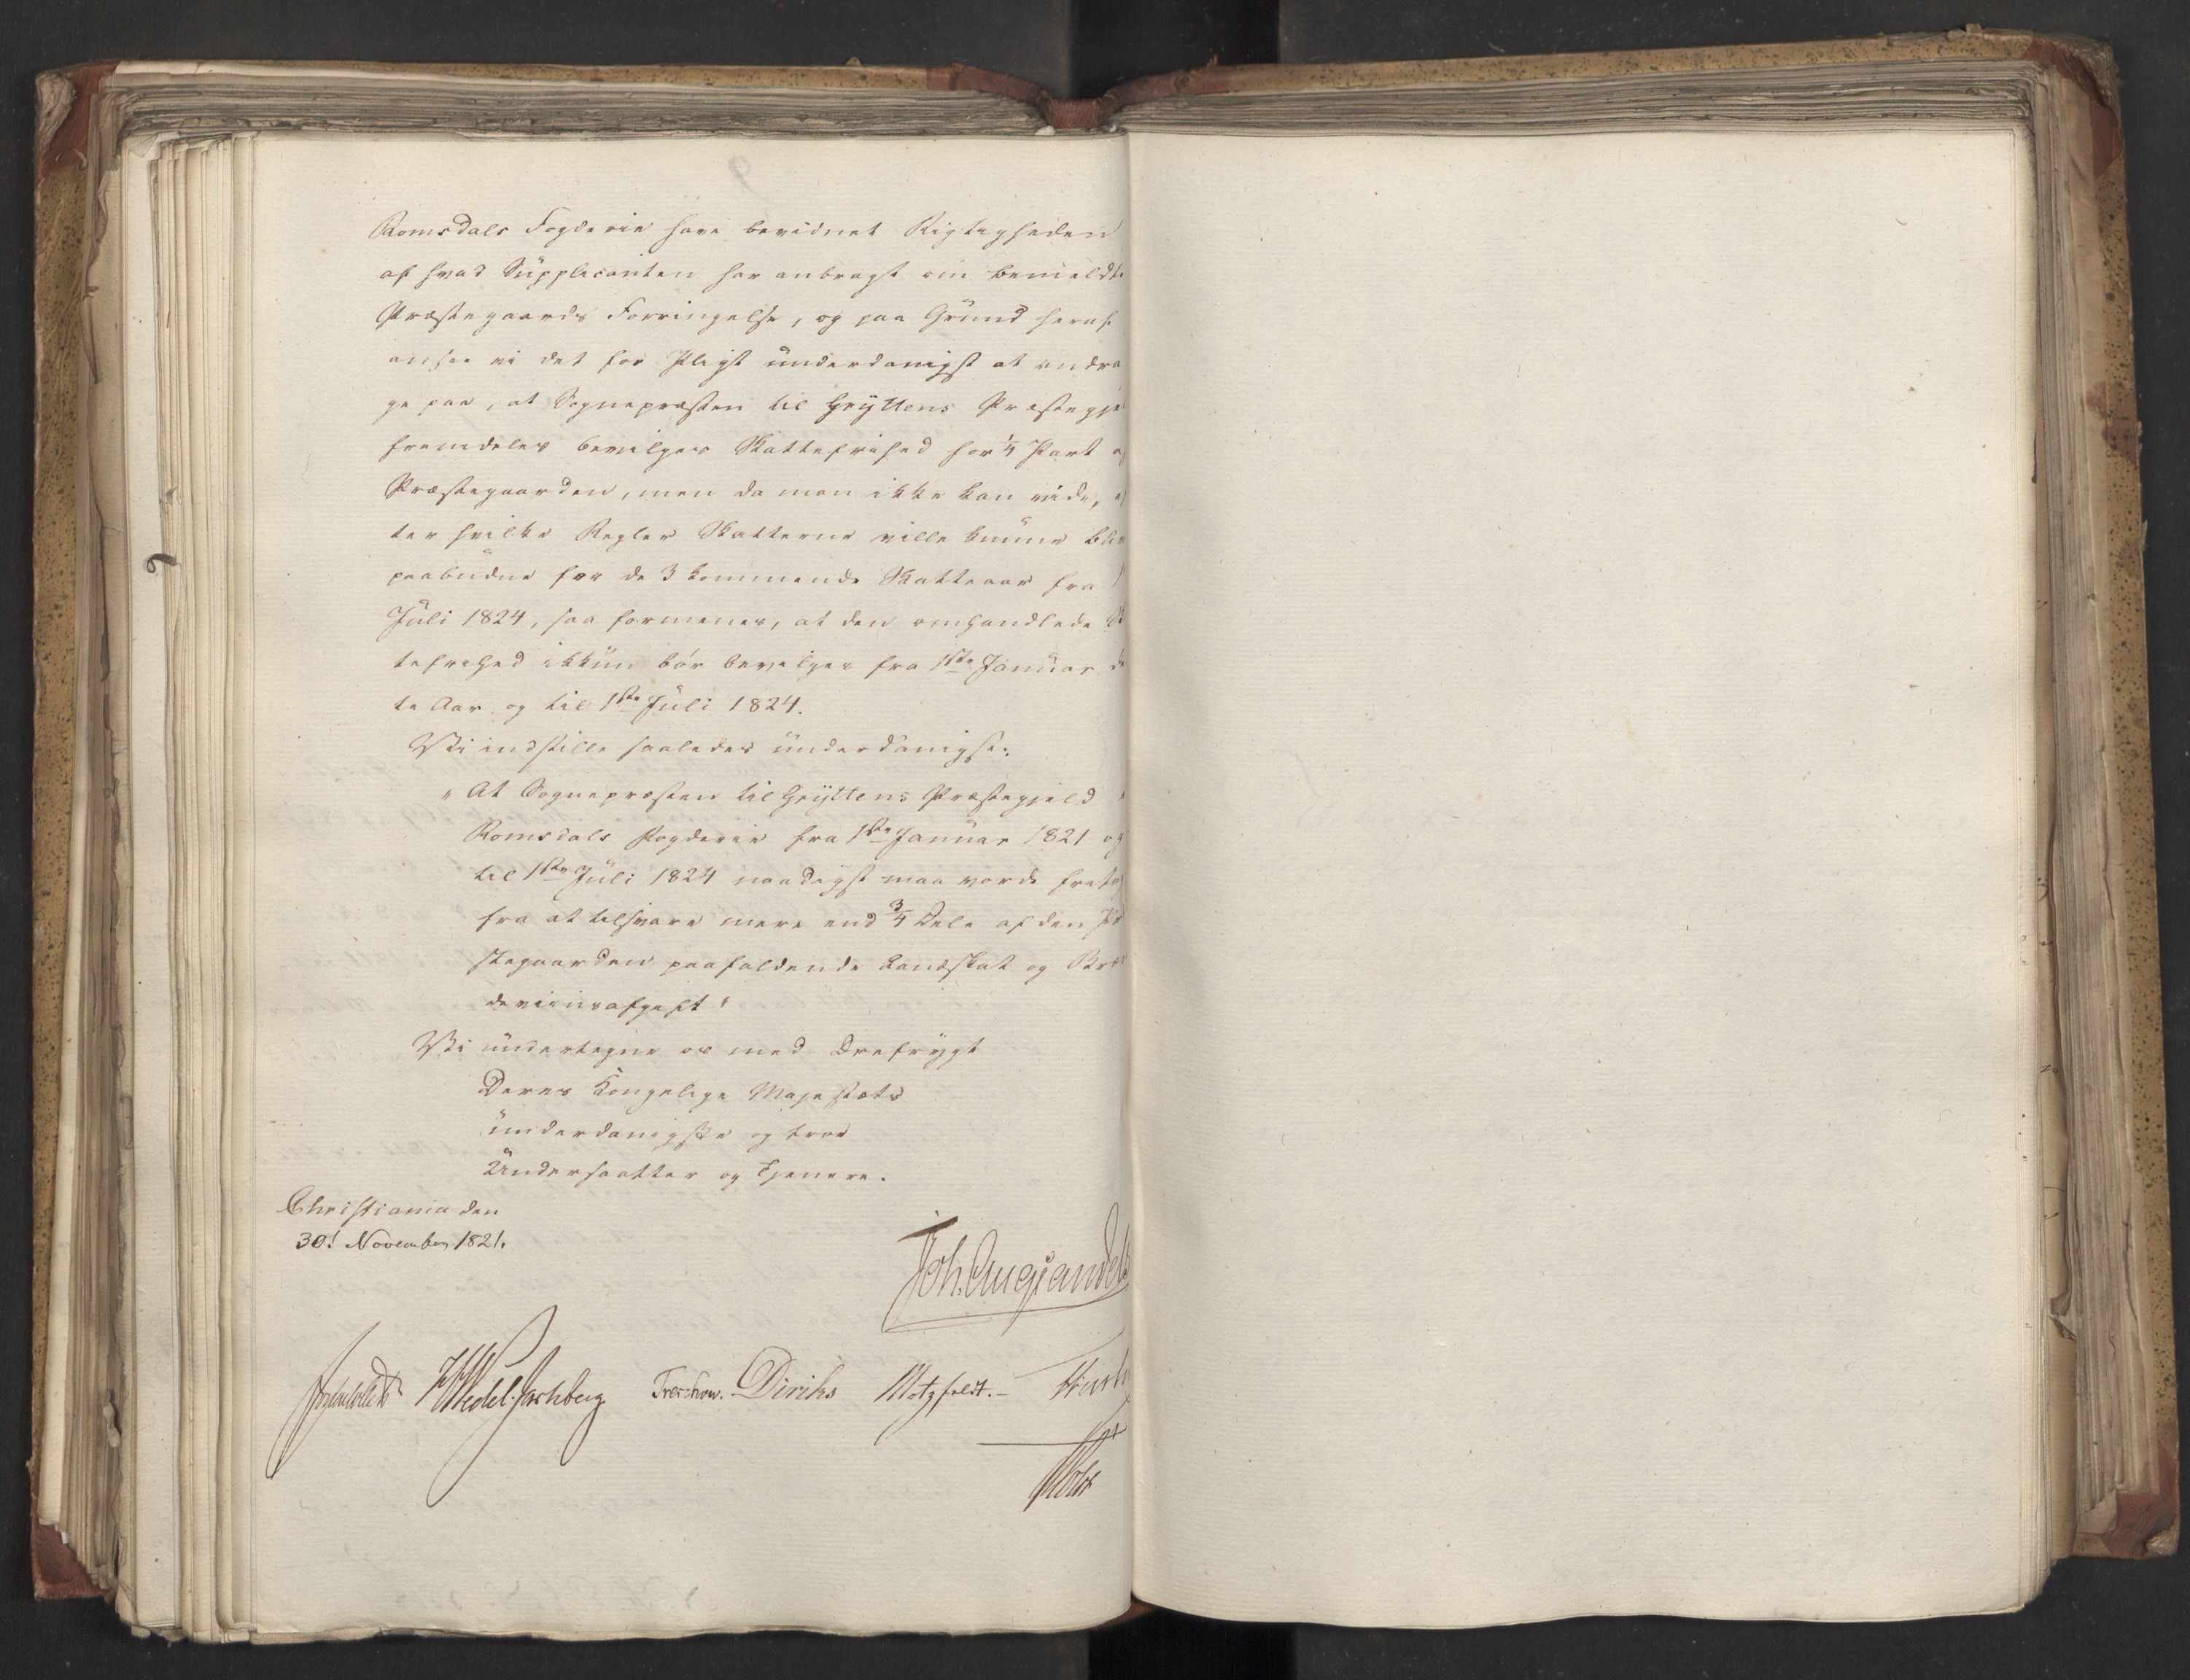 Romsdals Fogderie have bevidnet Rigtigheden
af hvad Supplicanten har anbragt om bemeldte
Præstegaards Forringelse, og paa Grund heraf
ansee vi det for Pligt underdanigst at andra
ge paa, at Sognepræsten til Gryttens Præstegje
fremdeles bevilges Skattefrihed for 1/4 Part af
Præstegaarden, men da man ikke kan vide, ef
ter hvilke Regler Skatterne ville kunne bliv
paabudne for de 3 kommende Skatteaar fra 1
Juli 1824, saa formenes, at den omhandlede Sk
tefrihed ikkun bör bevilges fra 1ste Januar d
te Aar og til 1ste Juli 1824.
Vi indstille saaledes underdanigst:
"At Sognepræsten til Gryttens Præstegjeld i
Romsdals Fogderie fra 1ste Januar 1821 og
til 1ste Juli 1824 naadigst maa vorde fritag
fra at tilsvare mere end 3/4 Dele af den Præ
stegaarden paafaldende Landskat og Bræn
deviinsafgift"
Vi undertegne os med Ærefrygt
Deres Kongelige Majestæts
underdanigste og troe
Undersaatter og Tjenere.
Christiania den
30t November 1821.
Joh. Aug. Sandels
HWedel-Jarlsberg Treschow. Diriks Motzfeldt.
Holst